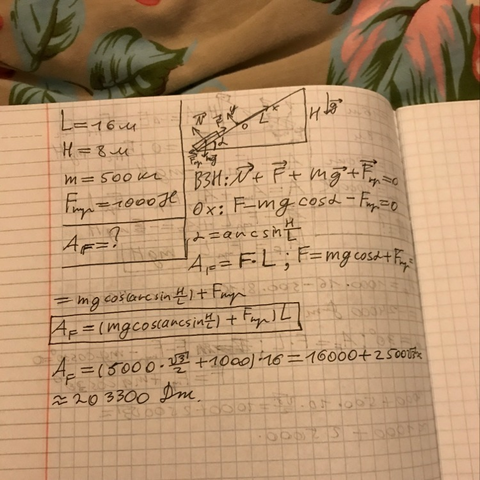 L = 16 м
H = 8 м
m = 500 кг
Fтр = 1000 Н
A_F = ?
N F x
O L
α
H g
Fтр mg
ВЗН: N⃗ + F⃗ + mg⃗ + F⃗тр = 0
Ox: F - mg cosα - Fтр = 0
α = arcsin H/L
A_F = F · L ; F = mg cosα + Fтр =
= mg cos(arcsin H/L) + Fтр
A_F = (mg cos(arcsin H/L) + Fтр) L
A_F = (5000 · √3/2 + 1000) · 16 = 16000 +
≈ 203300 Дж.